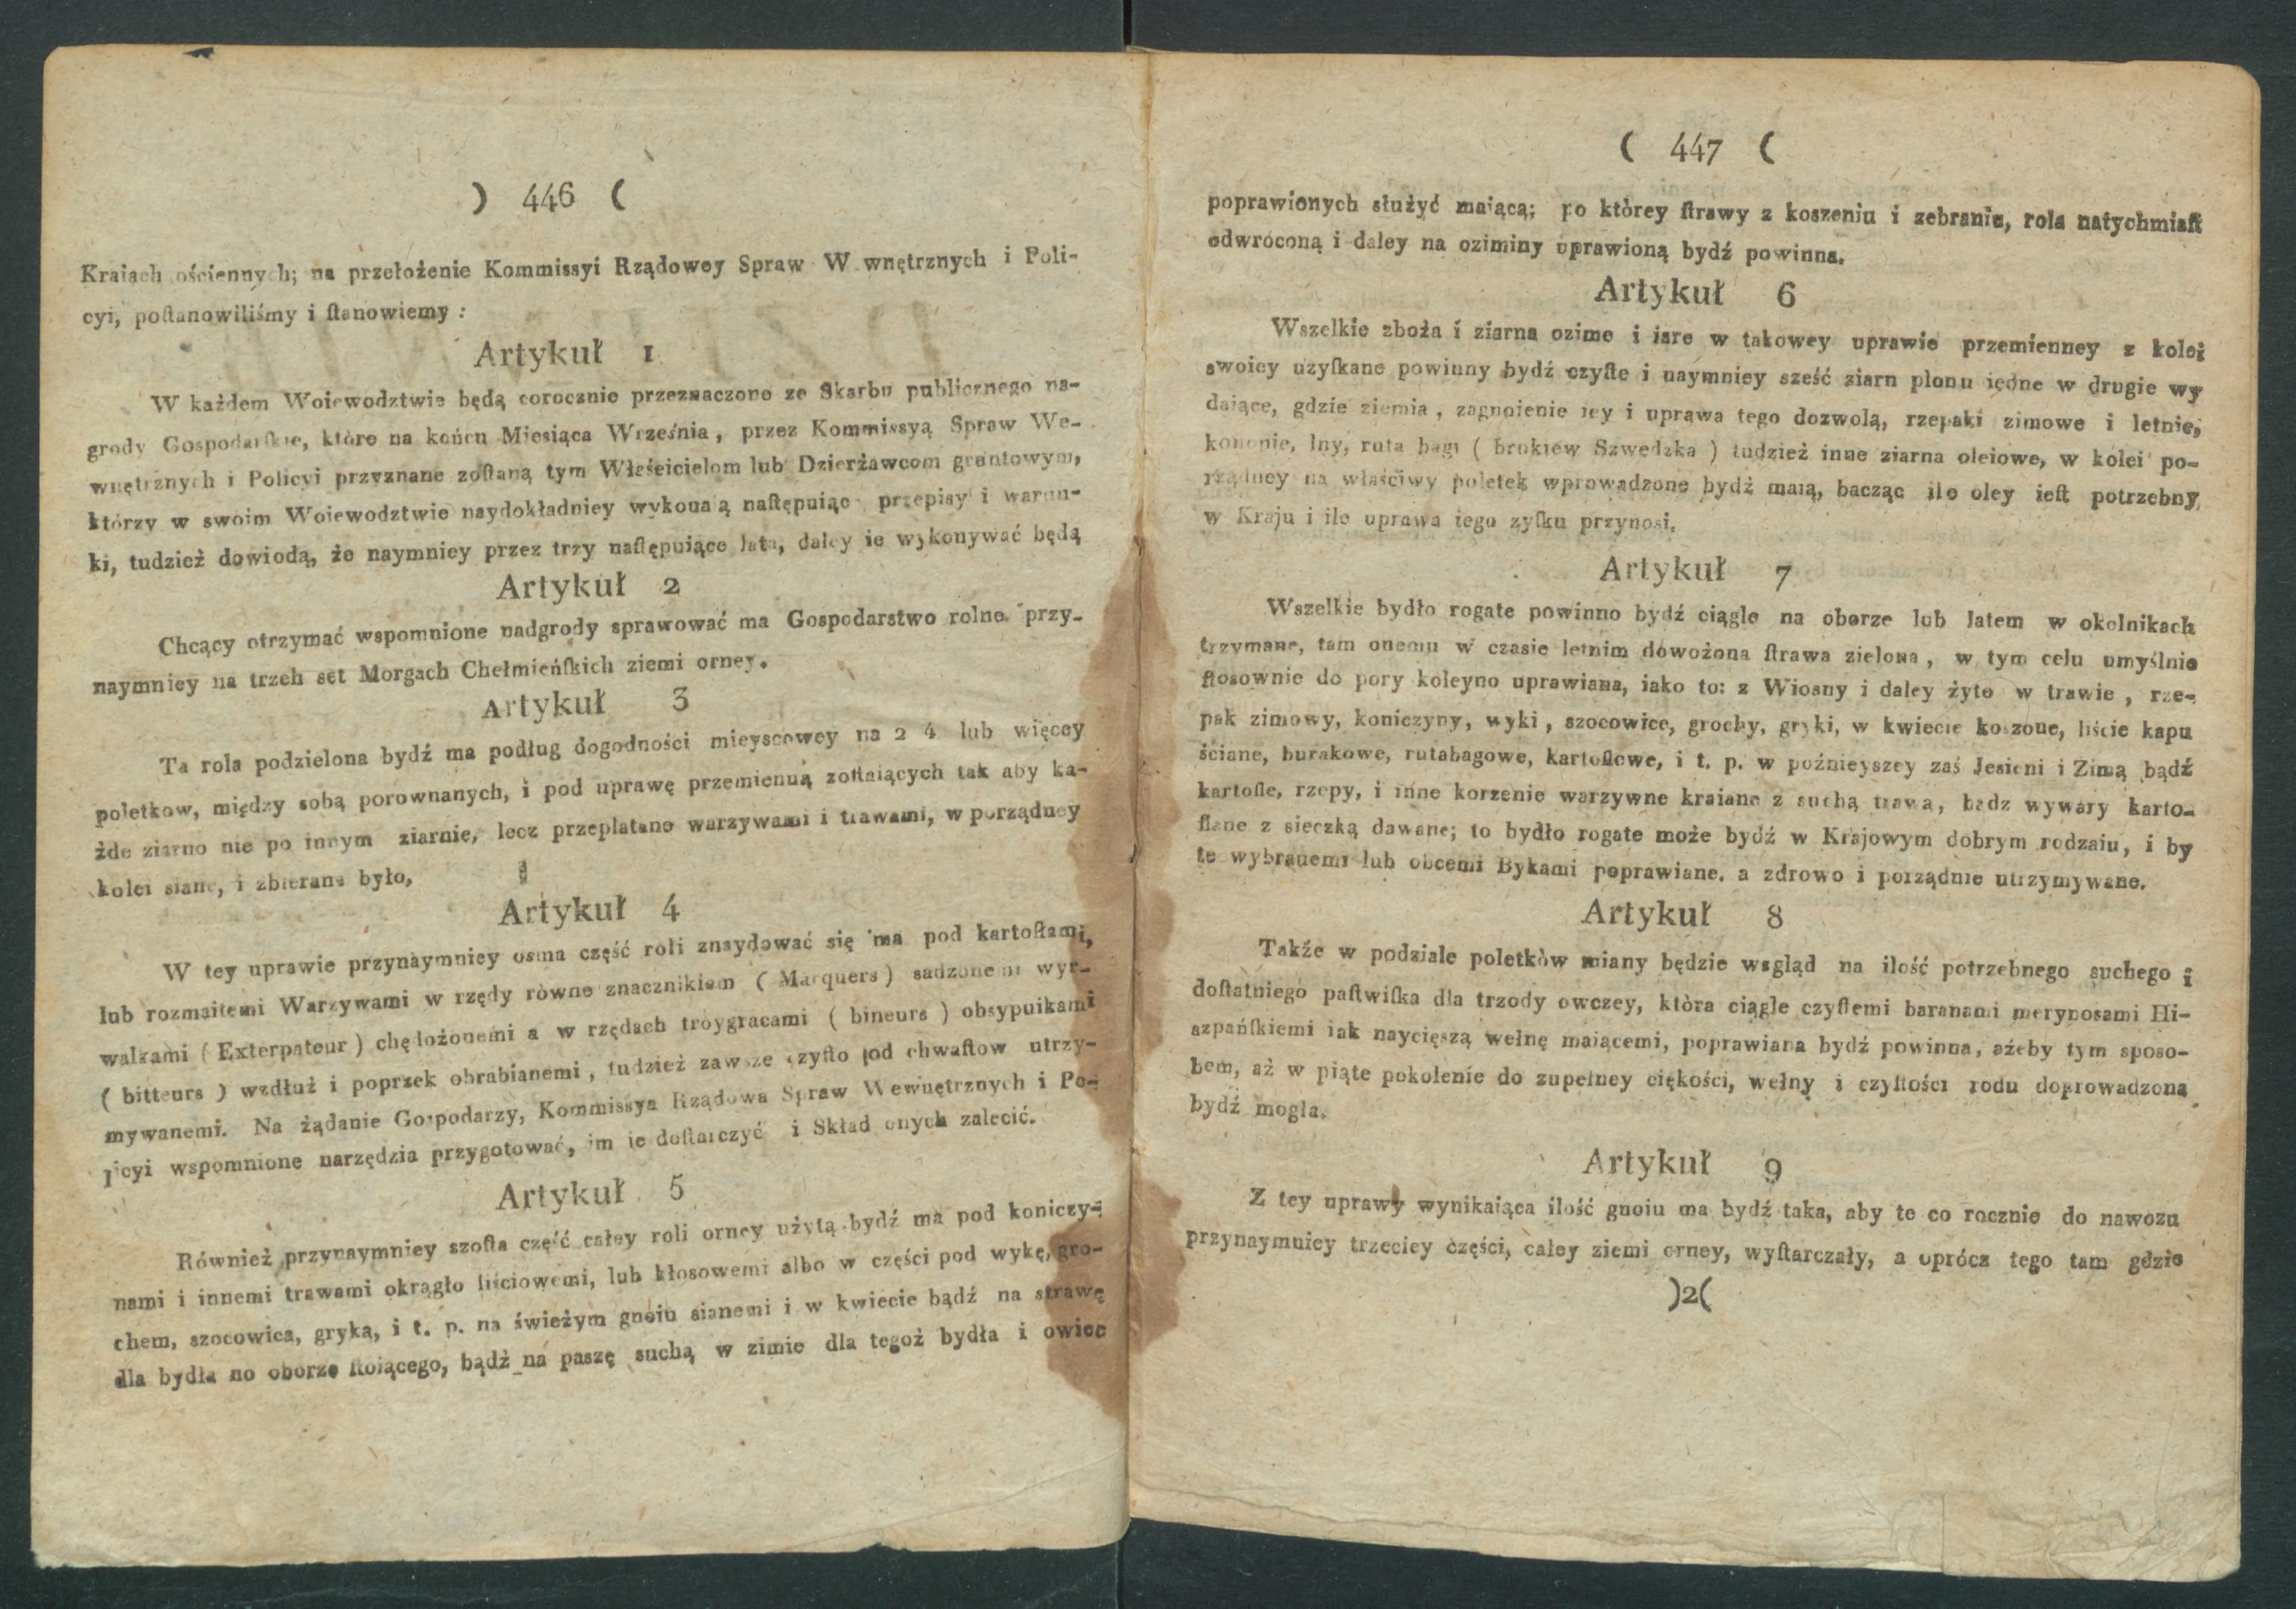 ) 446 (
Kraiach ościennych; na przełożenie Kommissyi Rządowey Spraw W wnętrznych i Poli-
cyi, poſtanowiliśmy i ſtanowiemy :
Artykuł 1
W każdem Woiewodztwie będą corocznie przeznaczone ze Skarbu publicznego na-
grody Gospodarſkie, które na końcu Miesiąca Września, przez Kommissyą Spraw We-
wnętrznych i Policyi przyznane zoſtaną tym Właścicielom lub Dzierżawcom gruntowym,
którzy w swoim Woiewodztwie naydokładniey wykonaią naſtępuiące przepisy i warun-
ki, tudzież dowiodą, że naymniey przez trzy naſtępuiące lata, daley ie wykonywać będą
Artykuł 2
Chcący otrzymać wspomnione nadgrody sprawować ma Gospodarstwo rolne przy-
naymniey na trzeh set Morgach Chełmieńſkich ziemi orney.
Artykuł 3
Ta rola podzielona bydź ma podług dogodności mieyscowey na 2 4 lub więcey
poletkow, między sobą porownanych, i pod uprawę przemienną zoſtaiących tak aby ka-
żde ziarno nie po innym ziarnie, lecz przeplatane warzywami i trawami, w porządney
kolei siane, i zbierane było,
Artykuł 4
W tey uprawie przynaymniey osma część roli znaydować się ma pod kartoflami,
lub rozmaitemi Warzywami w rzędy równe znacznikiem ( Marquers ) sadzonemi wyr-
walkami ( Exterpateur ) chędożonemi a w rzędach troygracami ( bineurs ) obsypuikami
( bitteurs ) wzdłuż i poprzek obrabianemi, tudzież zawsze czyſto od chwaſtow utrzy-
mywanemi. Na żądanie Gospodarzy, Kommissya Rządowa Spraw Wewnętrznych i Po-
licyi wspomnione narzędzia przygotować, im ie doſtarczyć i Skład onych zalecić.
Artykuł 5
Również przynaymniey szoſta część całey roli orney użytą bydź ma pod koniczy-
nami i innemi trawami okrągło liściowemi, lub kłosowemi albo w części pod wykę, gro-
chem, szocowica, gryką, i t. p. na świeżym gnoiu sianemi i w kwiecie bądź na strawę
dla bydła no oborze ſtoiącego, bądź na paszę suchą w zimie dla tegoż bydła i owiec
( 447 (
poprawionych służyć maiącą; po którey ſtrawy z koszeniu i zebraniu, rola natychmiaſt
odwróconą i daley na oziminy uprawioną bydź powinna.
Artykuł 6
Wszelkie zboża i ziarna ozime i iare w takowey uprawie przemienney z kolei
swoiey uzyſkane powinny bydź czyſte i naymniey sześć ziarn plonu iedne w drugie wy
daiące, gdzie ziemia, zagnoienie iey i uprawa tego dozwolą, rzepaki zimowe i letnie,
konopie, lny, ruta bagi ( brukiew Szwedzka ) tudzież inne ziarna oleiowe, w kolei po-
rządney na właściwy poletek wprowadzone bydź maią, bacząc ile oley ieſt potrzebny
w Kraju i ile uprawa iego zyſku przynosi.
Artykuł 7
Wszelkie bydło rogate powinno bydź ciągle na oborze lub latem w okolnikach
trzymane, tam onemu w czasie letnim dowożona ſtrawa zielona, w tym celu umyślnie
ſtosownie do pory koleyno uprawiana, iako to: z Wiosny i daley żyto w trawie, rze-
pak zimowy, koniczyny, wyki, szocowice, grochy, gryki, w kwiecie koszone, liście kapu
ściane, burakowe, rutabagowe, kartoflowe, i t. p. w poźnieyszey zaś Jesieni i Zimą bądź
kartofle, rzepy, i inne korzenie warzywne kraiane z suchą trawa, bądz wywary karto-
flane z sieczką dawane; to bydło rogate może bydź w Krajowym dobrym rodzaiu, i by
te wybranemi lub obcemi Bykami poprawiane. a zdrowo i porządnie utrzymywane.
Artykuł 8
Także w podziale poletków miany będzie wzgląd na ilość potrzebnego suchego i
doſtatniego paſtwiſka dla trzody owczey, która ciągle czyſtemi baranami merynosami Hi-
szpańſkiemi iak naycięszą wełnę maiącemi, poprawiana bydź powinna, ażeby tym sposo-
bem, aż w piąte pokolenie do zupełney ciękości, wełny i czyſtości rodu doprowadzona
bydź mogła.
Artykuł 9
Z tey uprawy wynikaiąca ilość gnoiu ma bydź taka, aby te co rocznie do nawozu
przynaymniey trzeciey części, całey ziemi orney, wyſtarczały, a oprócz tego tam gdzie
)2(